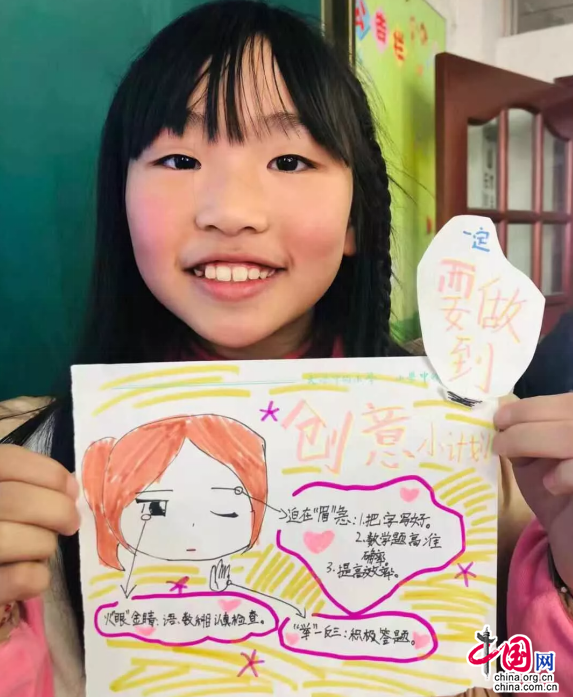 公告栏
一定
要做
到
创意小计划
迫在"眉"急:1.把字写好。
2.数学题高准
确率
3.提高效率。
火"眼"金睛:语、数、相认真检查。
"举"一反三:积极答题。
中国网
china.org.cn
china.com.cn